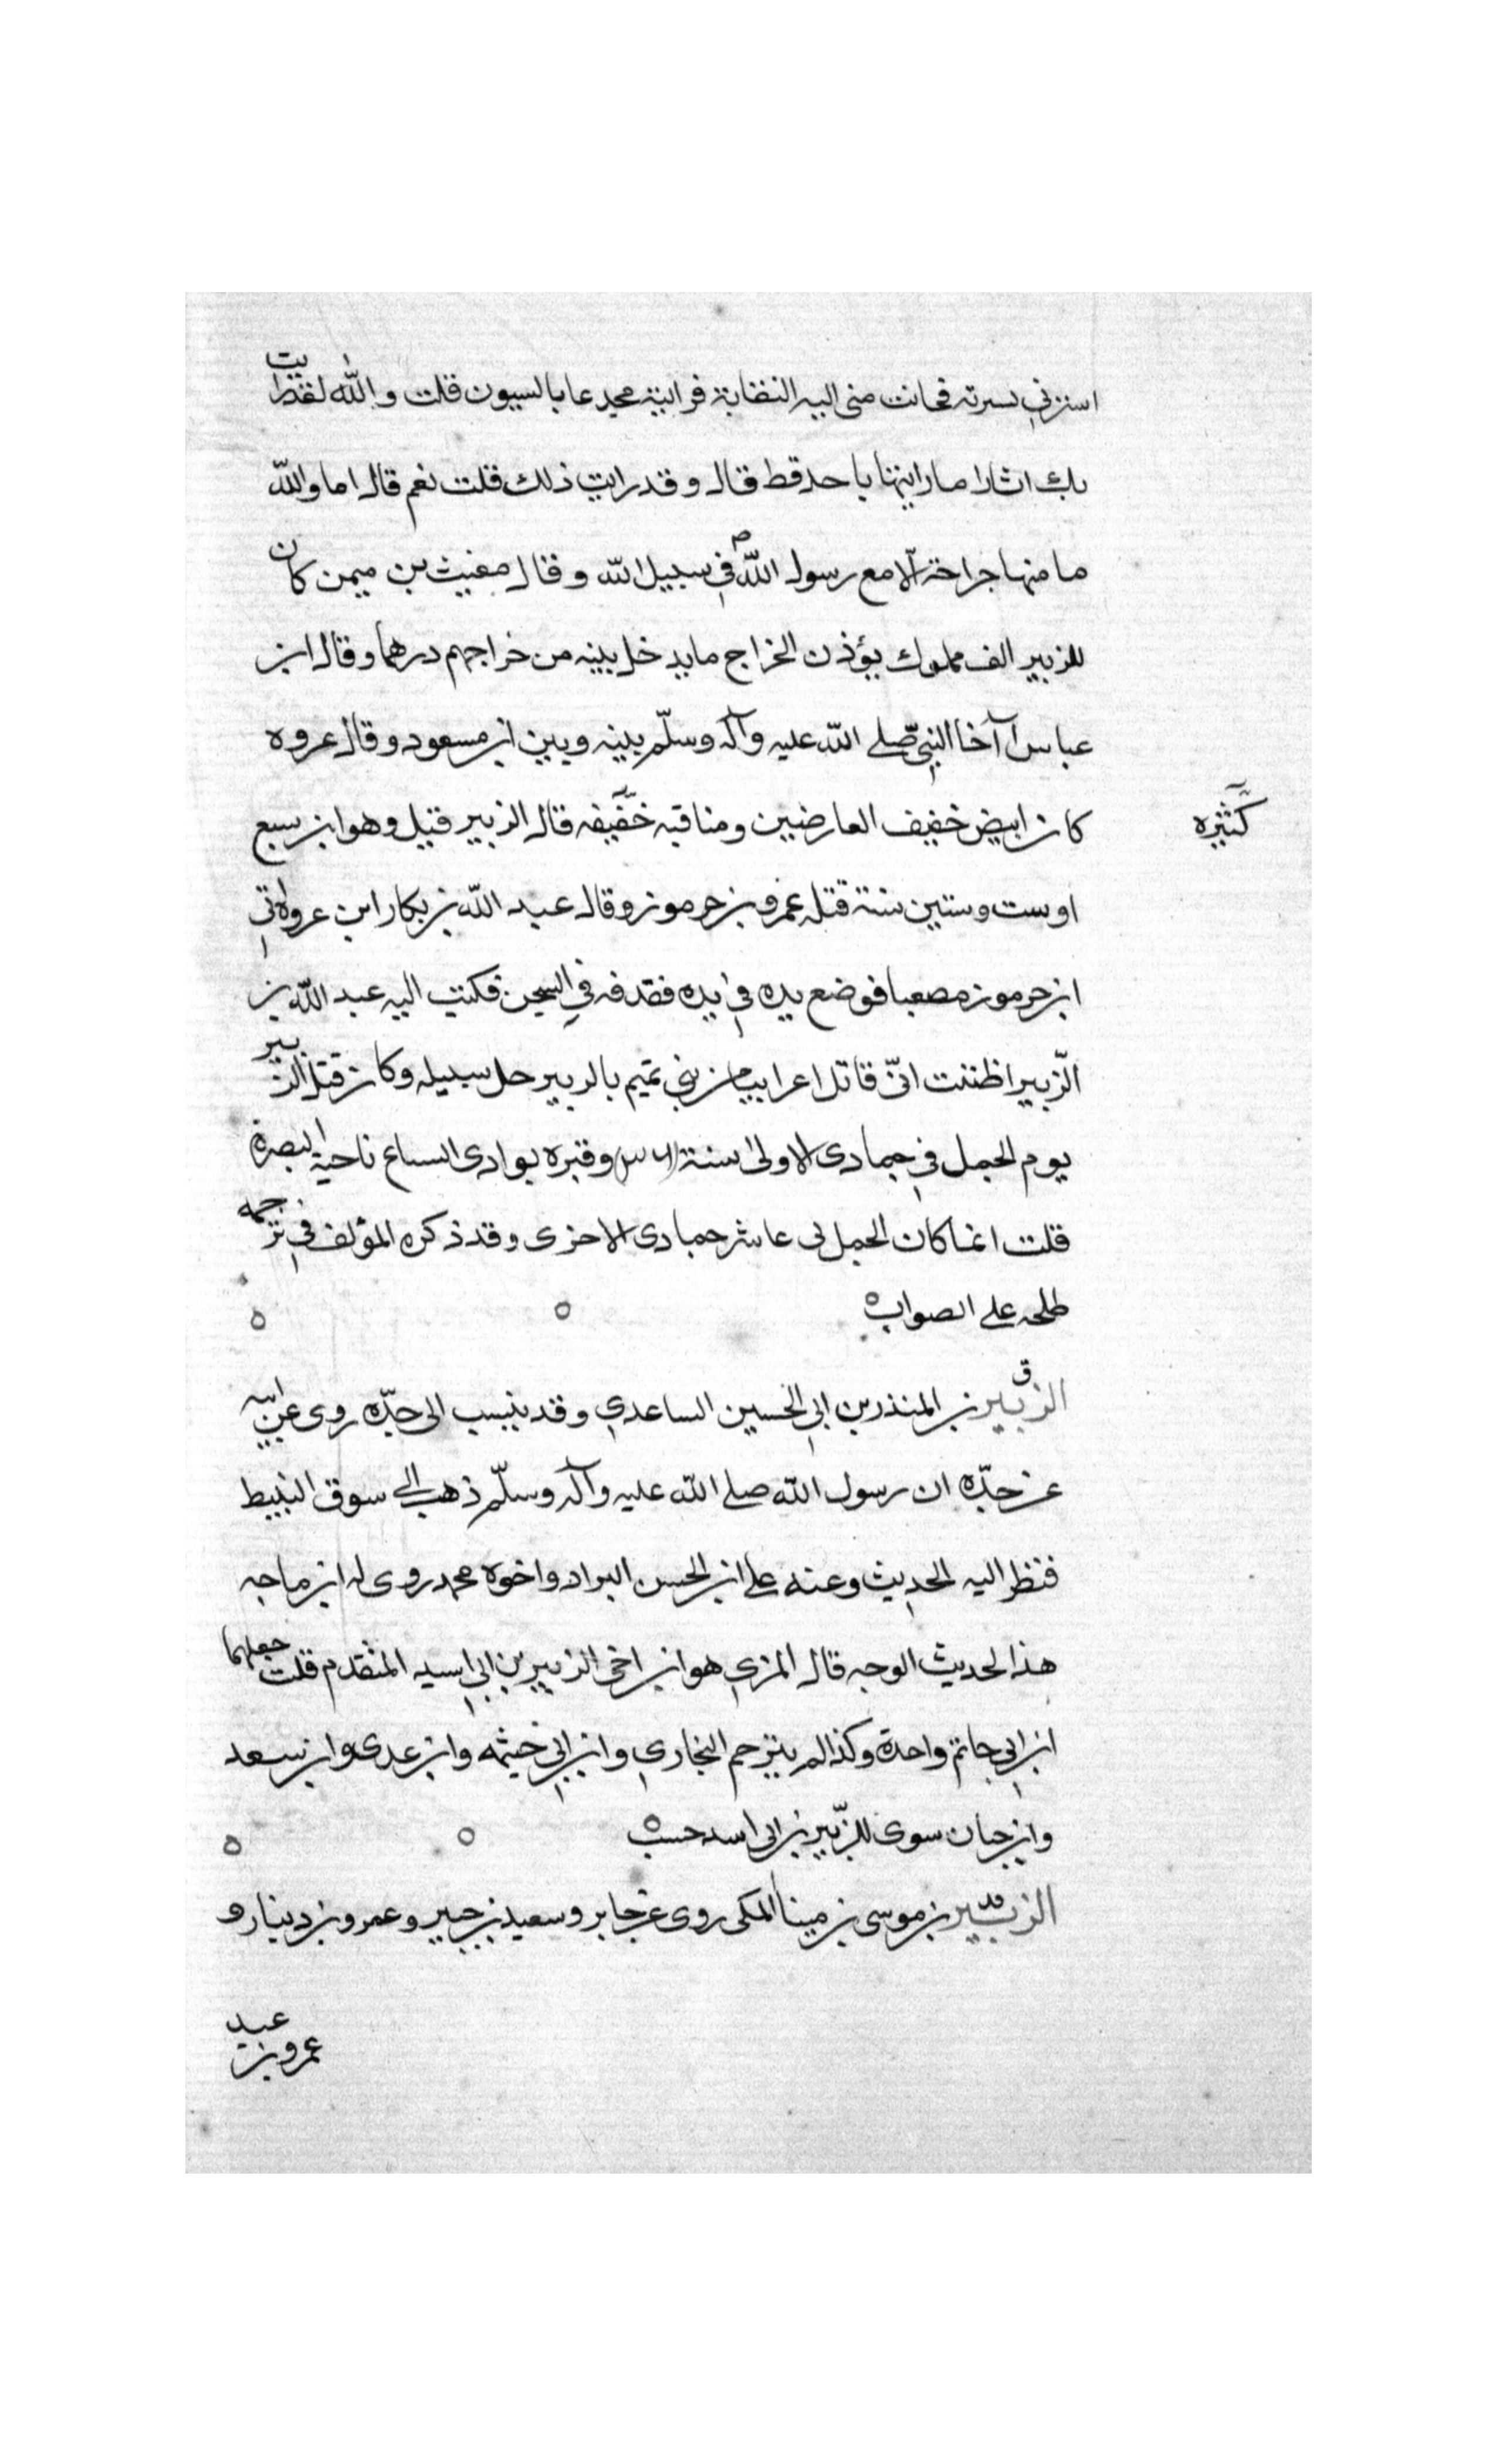 استرني فسرته فحانت مني اليه التفاتة فرايته مجدعا بالسيوف قلت والله لقد رايت
بك اثارا ما رايتها باحد قط قال وقد رايت ذلك قلت نعم قال اما والله
ما منها جراحة الا مع رسول الله ص في سبيل الله وقال مغيث بن سمى كان
للزبير الف مملوك يؤذن الخراج ما يدخل بيته من خراجهم درهما وقال ابن
عباس آخا النبي صلى الله عليه وآله وسلّم بينه وبين ابن مسعود وقال عروه
كان ابيض خفيف العارضين ومناقبه خفيفه قال الزبير قتيل وهو ابن سبع
كثيره
او ست وستين سنة قتله عمرو بن جرموز وقال عبد الله بن بكار ابن عروة اتى
ابن جرموز مصعبا فوضع يده في يده فقدفه في السجن فكتب اليه عبد الله بن
الزّبير اظننت انّي قاتل اعرابيا من بني تميم بالزبير حل سبيله وكان قتل الزبير
يوم الجمل في جمادى الاولى سنة وقبره بوادى السباع ناحية البصرة
قلت انما كان الجمل فى عاشر جمادى الاخرى وقد ذكره المؤلف في ترجمه
طلحه على الصواب
ق
الزبير بن المنذر بن ابي الحسين الساعدي وقد ينسب الى جدّه روى عن ابيه
عن جدّه ان رسول الله صلى الله عليه وآله وسلّم ذهب الى سوق النبيط
فنظر اليه الحديث وعنه على ابن الحسن البراد واخوه محمد روى له ابن ماجه
هذا الحديث الوجه قال المزي هو ابن اخي الزبير بن ابي اسيد المتقدم قلت جعلهما
ابن ابي حاتم واحدة وكذا لم يترجم البخاري وابن ابي خيثمه وابن عدى وابن سعد
وابن حبان سوى للزّبير بن ابى اسد حسب
الزبير بن موسى بن مينا المكى روى عن جابر وسعيد بن جبير وعمرو بن دينار و
عبد
عمرو بن